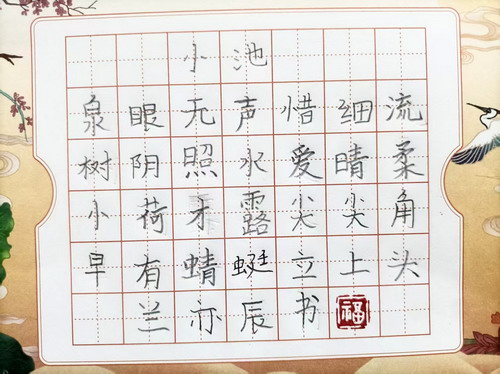 小池
泉眼无声惜细流
树阴照水爱晴柔
小荷才露尖尖角
早有蜻蜓立上头
兰亦辰书 福